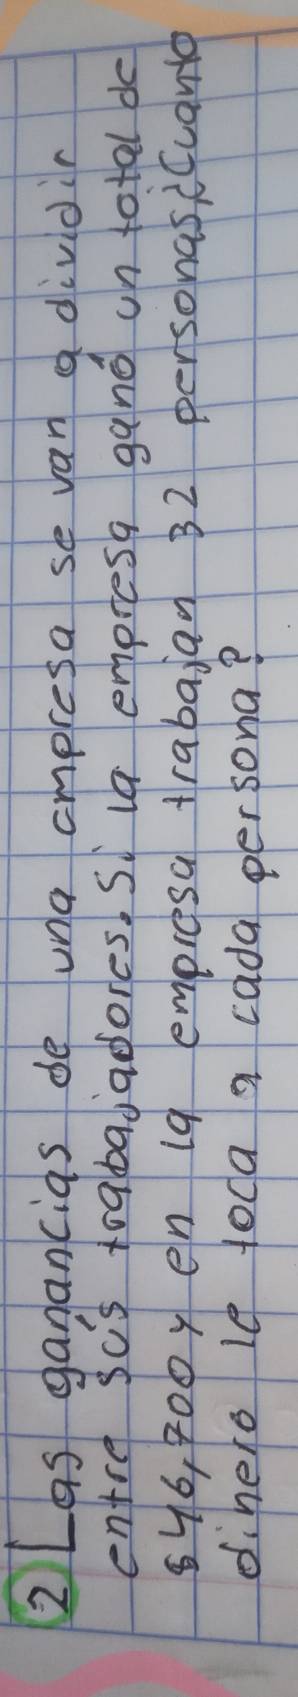 2 Las ganancias de una empresa se van a dividir
entre sus trabajadores. Si la empresa ganó un total de
$46,700 y en la empresa trabajan 32 personas ¿Cuanto
dinero le toca a cada persona?